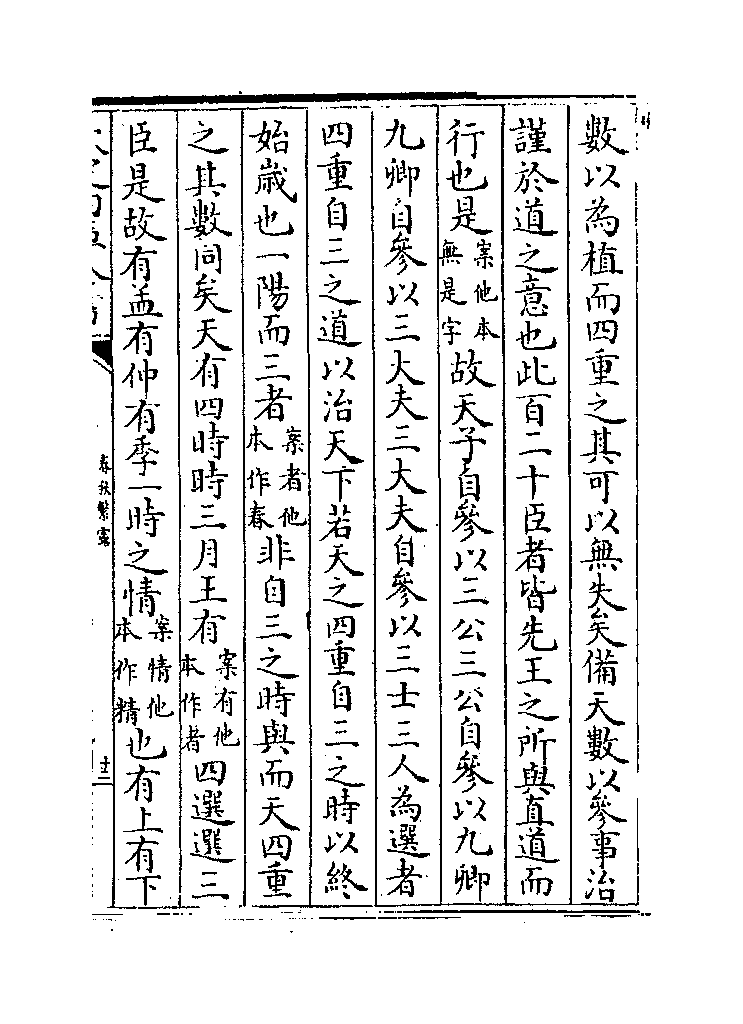 數以為植而四重之其可以無失矣備天數以參事治
謹於道之意也此百二十臣者皆先王之所與直道而
行也是案他本無是字故天子自參以三公三公自參以九卿
九卿自參以三大夫三大夫自參以三士三人為選者
四重自三之道以治天下若天之四重自三之時以終
始歲也一陽而三者案者他本作春非自三之時與而天四重
之其數同矣天有四時時三月王有案有他本作者四選選三
臣是故有孟有仲有季一時之情案情他本作精也有上有下
春秋繁露